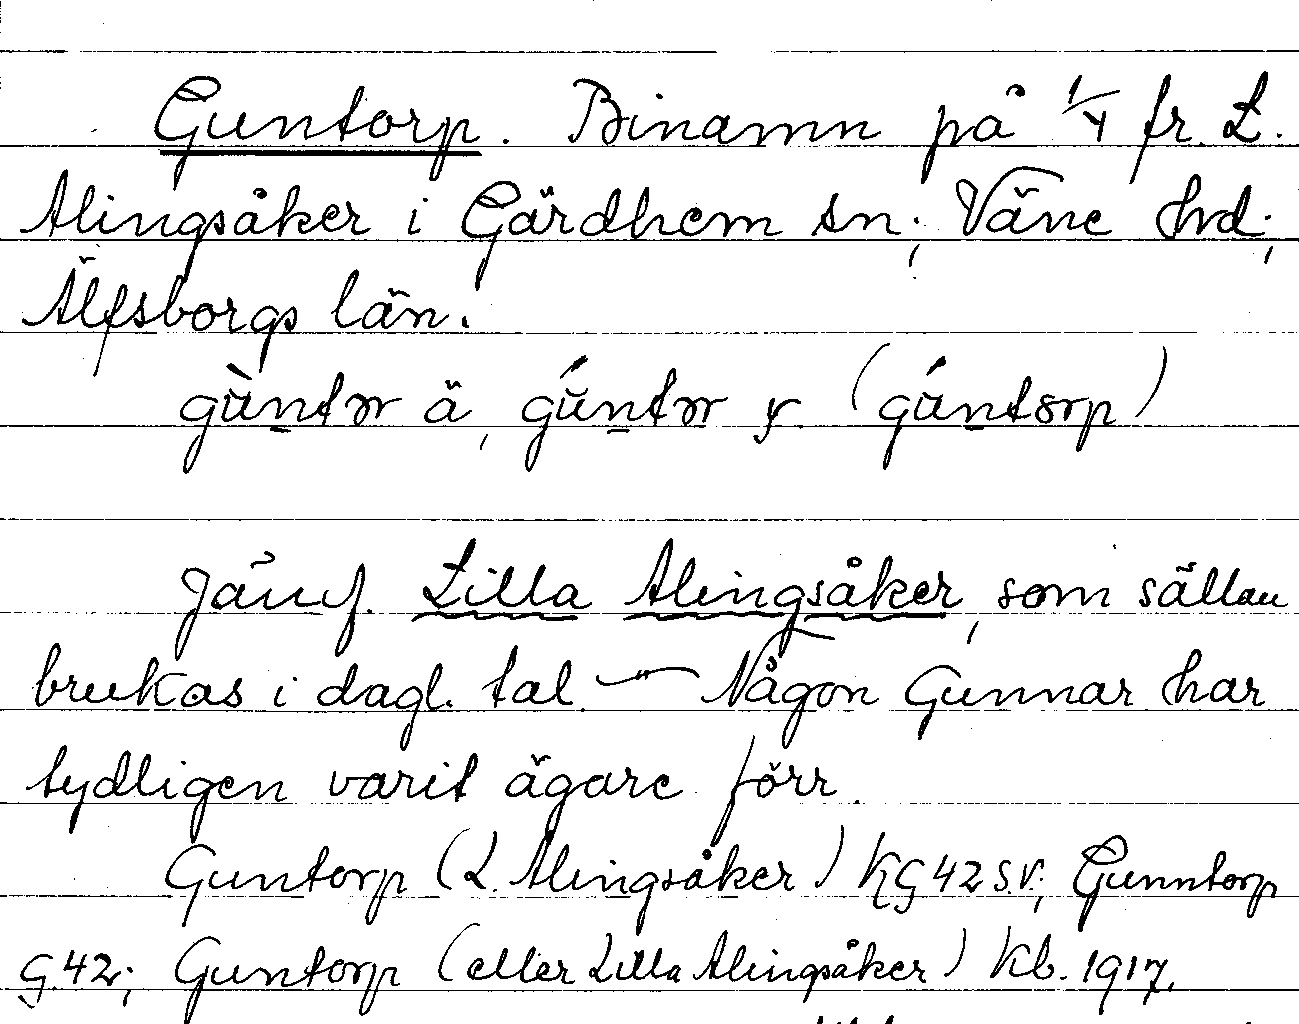 Guntorp. Binamn på 1/4 fr. L.
Alingsåker i Gärdhem sn, Väne hd,
Älfsborgs län.
gùntər ä, gúntər y. (gúntorp)
Jämf. Lilla Alingsåker, som sällan
brukas i dagl. tal. — Någon Gunnar har
tydligen varit ägare förr.
Guntorp (L. Alingsåker) KG42SV; Gunntorp
G.42; Guntorp (eller Lilla Alingsåker) Kb. 1917.